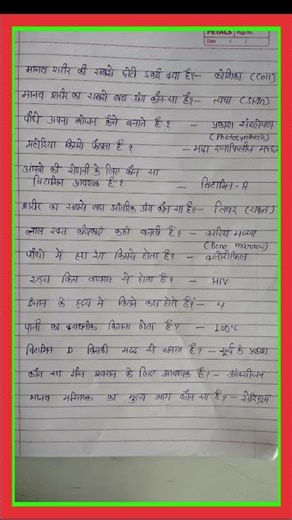 PETALS Page No.
Date / /
मानव शरीर की सबसे छोटी इकाई क्या है? – कोशिका (Cell)
मानव शरीर का सबसे बड़ा अंग कौन सा है? – त्वचा (Skin)
पौधे अपना भोजन कैसे बनाते हैं? – प्रकाश संश्लेषण
(Photosynthesis)
मलेरिया किससे फैलता है? – मादा एनाफिलीज मच्छर
आंखों की रोशनी के लिए कौन सा
विटामिन आवश्यक है? – विटामिन - A
शरीर का सबसे बड़ा आंतरिक अंग कौन सा है? – लिवर (यकृत)
लाल रक्त कहां बनती हैं? – अस्थि मज्जा
(Bone marrow)
पौधों में हरा रंग किससे होता है? – क्लोरोफिल
एड्स किस वायरस से होता है? – HIV
इंसान के हृदय में कितने कक्ष होते हैं? – 4
पानी का क्वथनांक कितना होता है? – 100°C
विटामिन D किसकी मदद से बनता है? – सूर्य के प्रकाश
कौन सा गैस श्वसन के लिए आवश्यक है? – ऑक्सीजन
मानव मस्तिष्क का मुख्य भाग कौन सा है? – सेरिब्रम